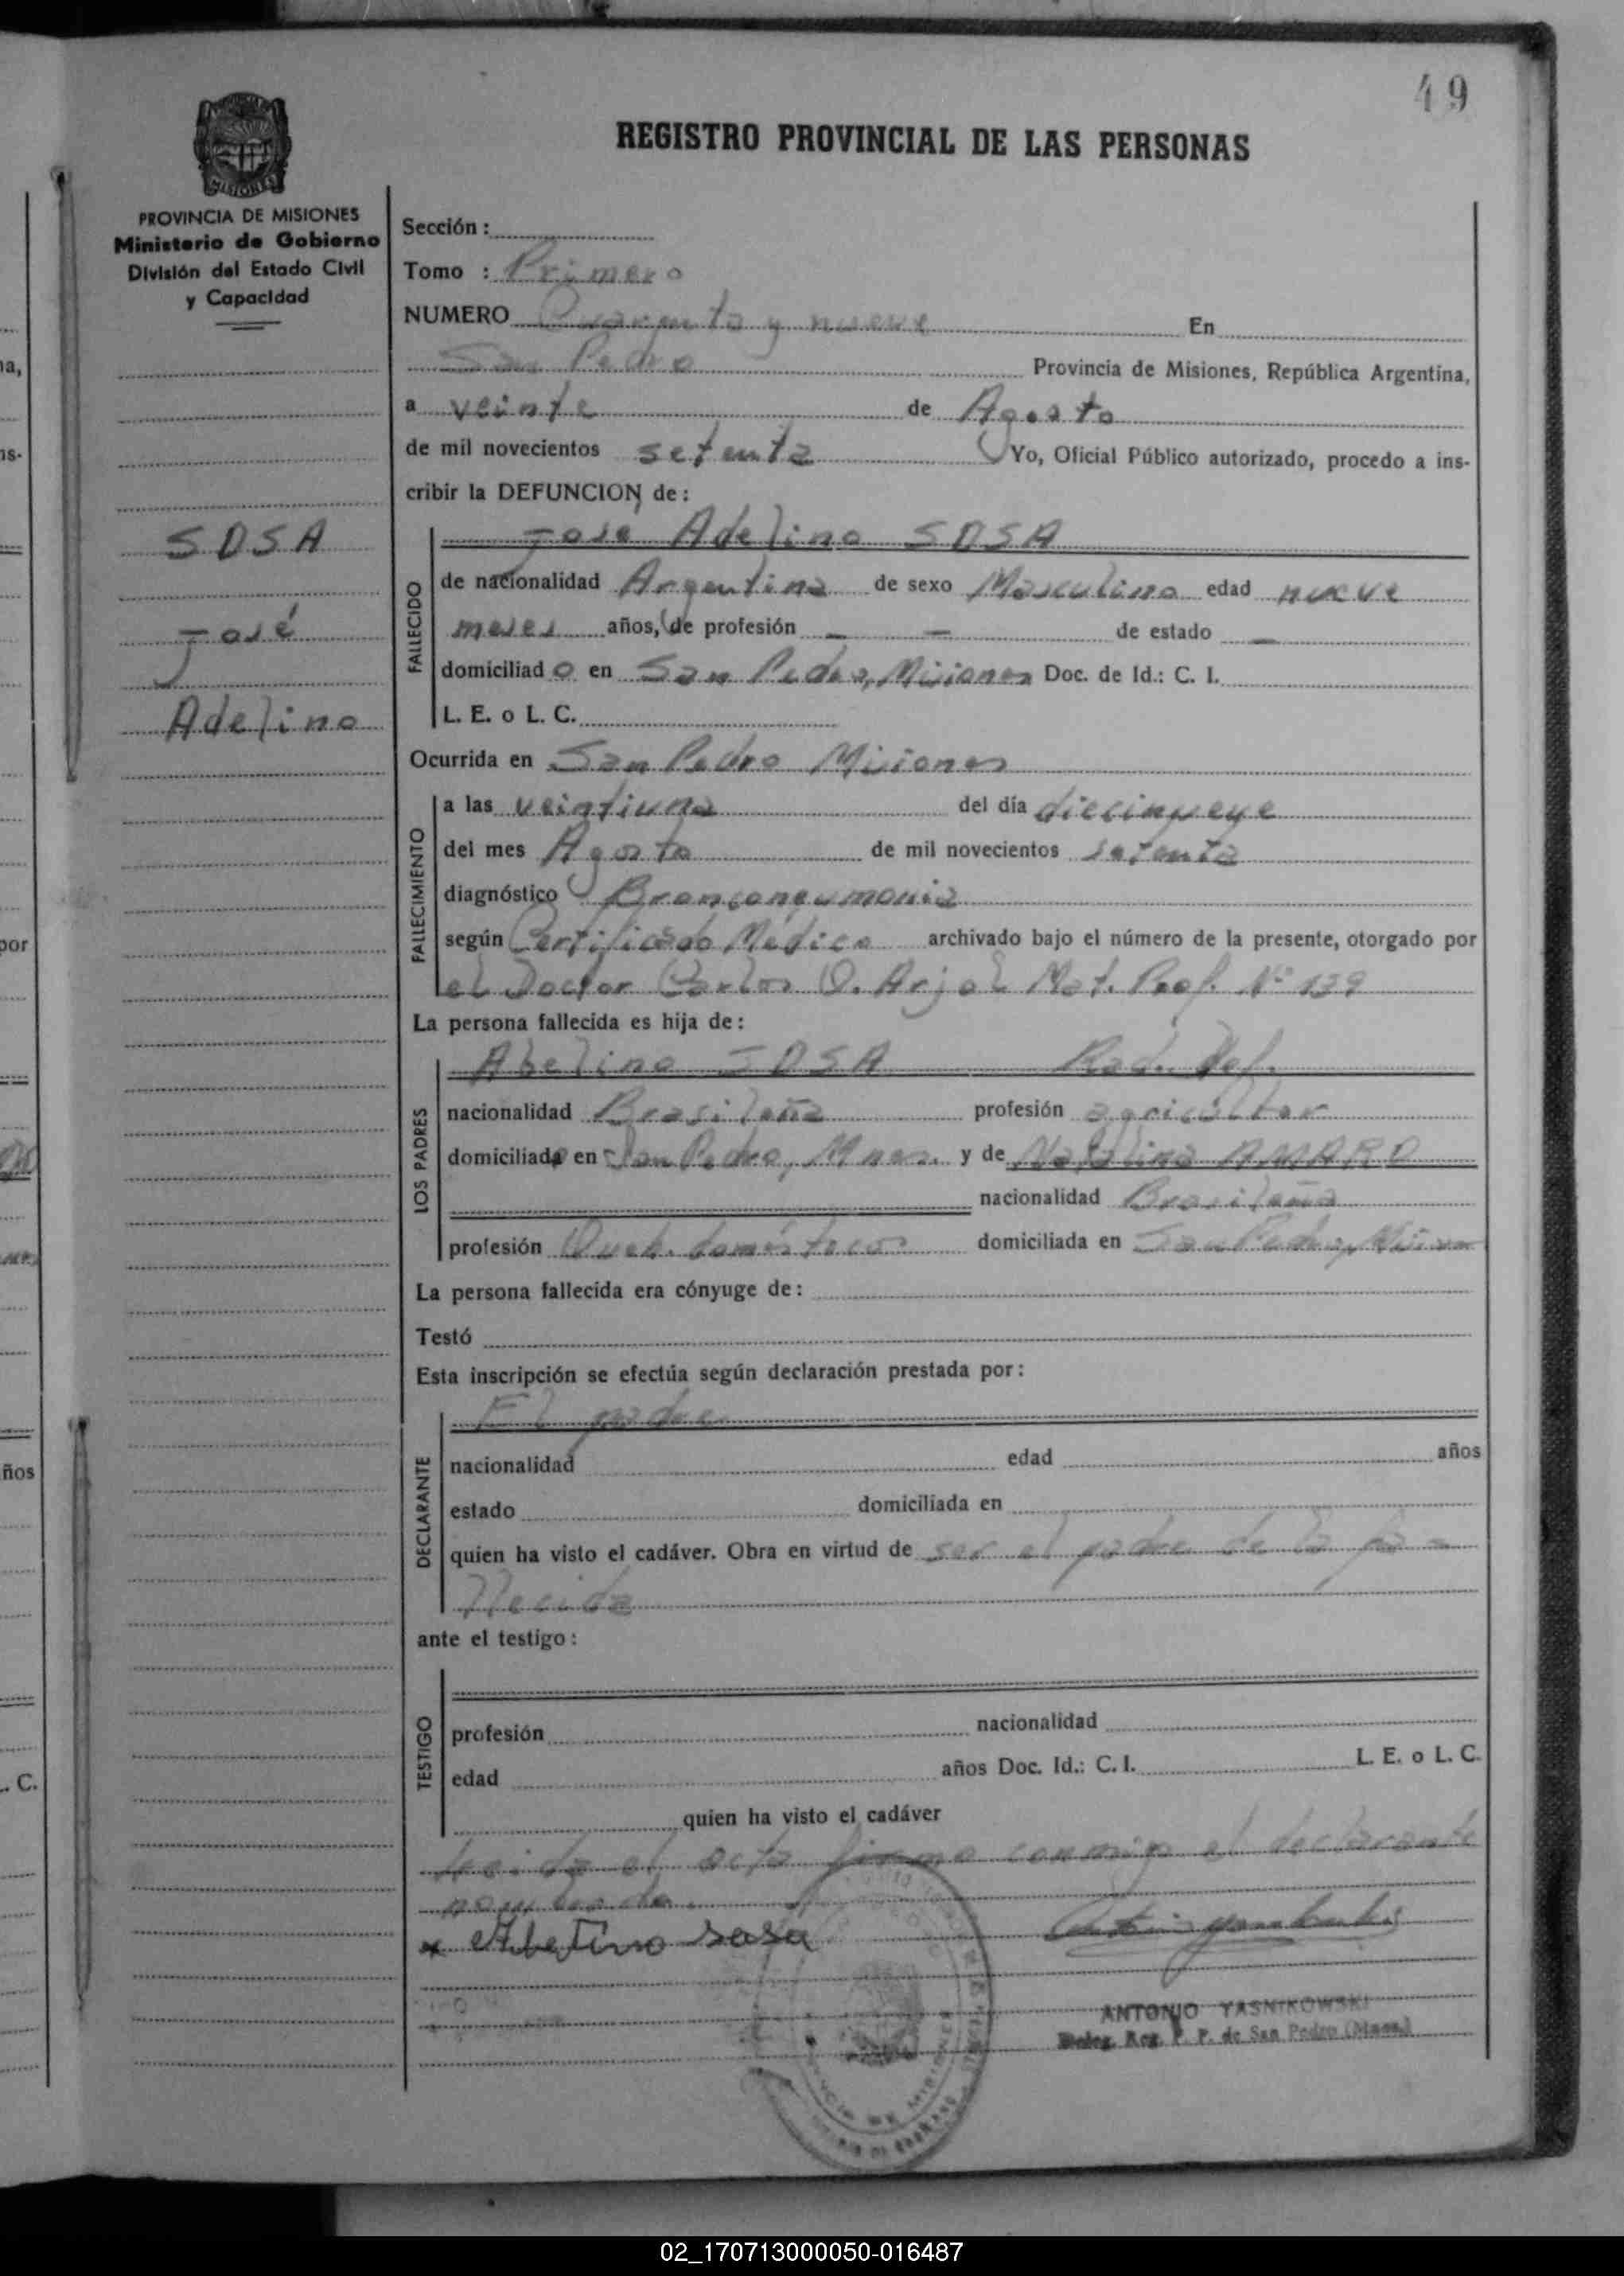 49
REGISTRO PROVINCIAL DE LAS PERSONAS
PROVINCIA DE MISIONES
Ministerio de Gobierno
División del Estado Civil
y Capacidad
SOSA
José
Adelino
Sección :
Tomo : Primero
NUMERO Cuarenta y nueve En
San Pedro Provincia de Misiones, República Argentina,
a veinte de Agosto
de mil novecientos setenta Yo, Oficial Público autorizado, procedo a ins-
cribir la DEFUNCION de :
FALLECIDO
Jose Adelino SOSA
de nacionalidad Argentina de sexo Masculino edad nueve
meses años, de profesión — — de estado —
domiciliad o en San Pedro, Misiones Doc. de Id.: C. I.
L. E. o L. C.
Ocurrida en San Pedro Misiones
FALLECIMIENTO
a las veintiuna del día diecinueve
del mes Agosto de mil novecientos setenta
diagnóstico Bronconeumonia
según Certificado Médico archivado bajo el número de la presente, otorgado por
el Doctor Carlos O. Arjol Mat. Prof. Nº 139
La persona fallecida es hija de :
LOS PADRES
Abelino SOSA
nacionalidad Brasileña profesión agricultor
domiciliado en San Pedro, Mnes. y de Natalina AMARO
nacionalidad Brasileña
profesión Queh. domésticos domiciliada en San Pedro, Misiones
La persona fallecida era cónyuge de :
Testó
Esta inscripción se efectúa según declaración prestada por :
DECLARANTE
El padre
nacionalidad edad años
estado domiciliada en
quien ha visto el cadáver. Obra en virtud de ser el padre de la fa-
llecida
ante el testigo :
TESTIGO
profesión nacionalidad
edad años Doc. Id.: C. I. L. E. o L. C.
quien ha visto el cadáver
Leida el acta firma conmigo el declarante
nombrado.
x Abelino sosa
ANTONIO YASNIKOWSKI
Deleg. Reg. P. P. de San Pedro (Mnes.)
02_170713000050-016487